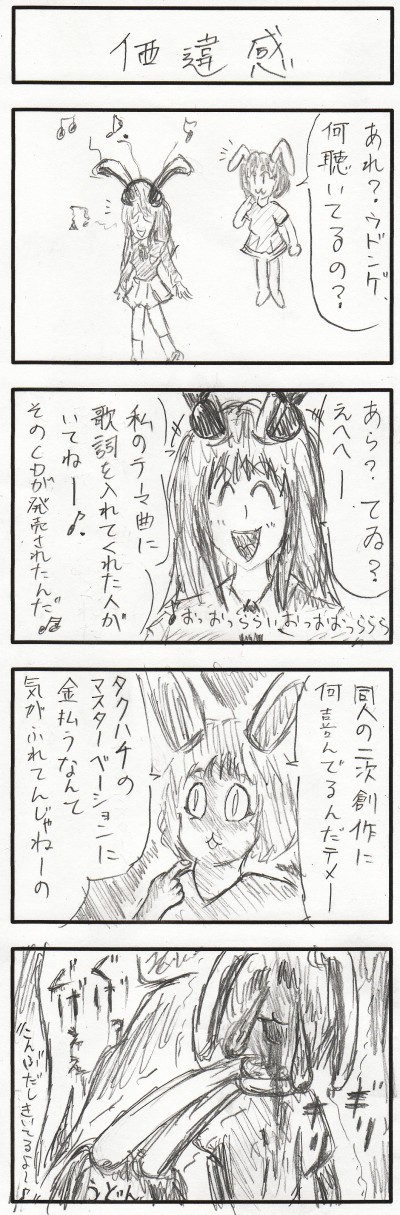 価違感
あれ？ウドンゲ、
何聴いてるの？
あら？てゐ？
えへへー
私のテーマ曲に
歌詞を入れてくれた人が
いてねー♪
そのCDが発売されたんだ♪
♪おっおっららいおっおおっらららら
同人の二次創作に
何喜んでるんだテメー
タクハチの
マスターベーションに
金払うなんて
気がふれてんじゃねーの
うどん